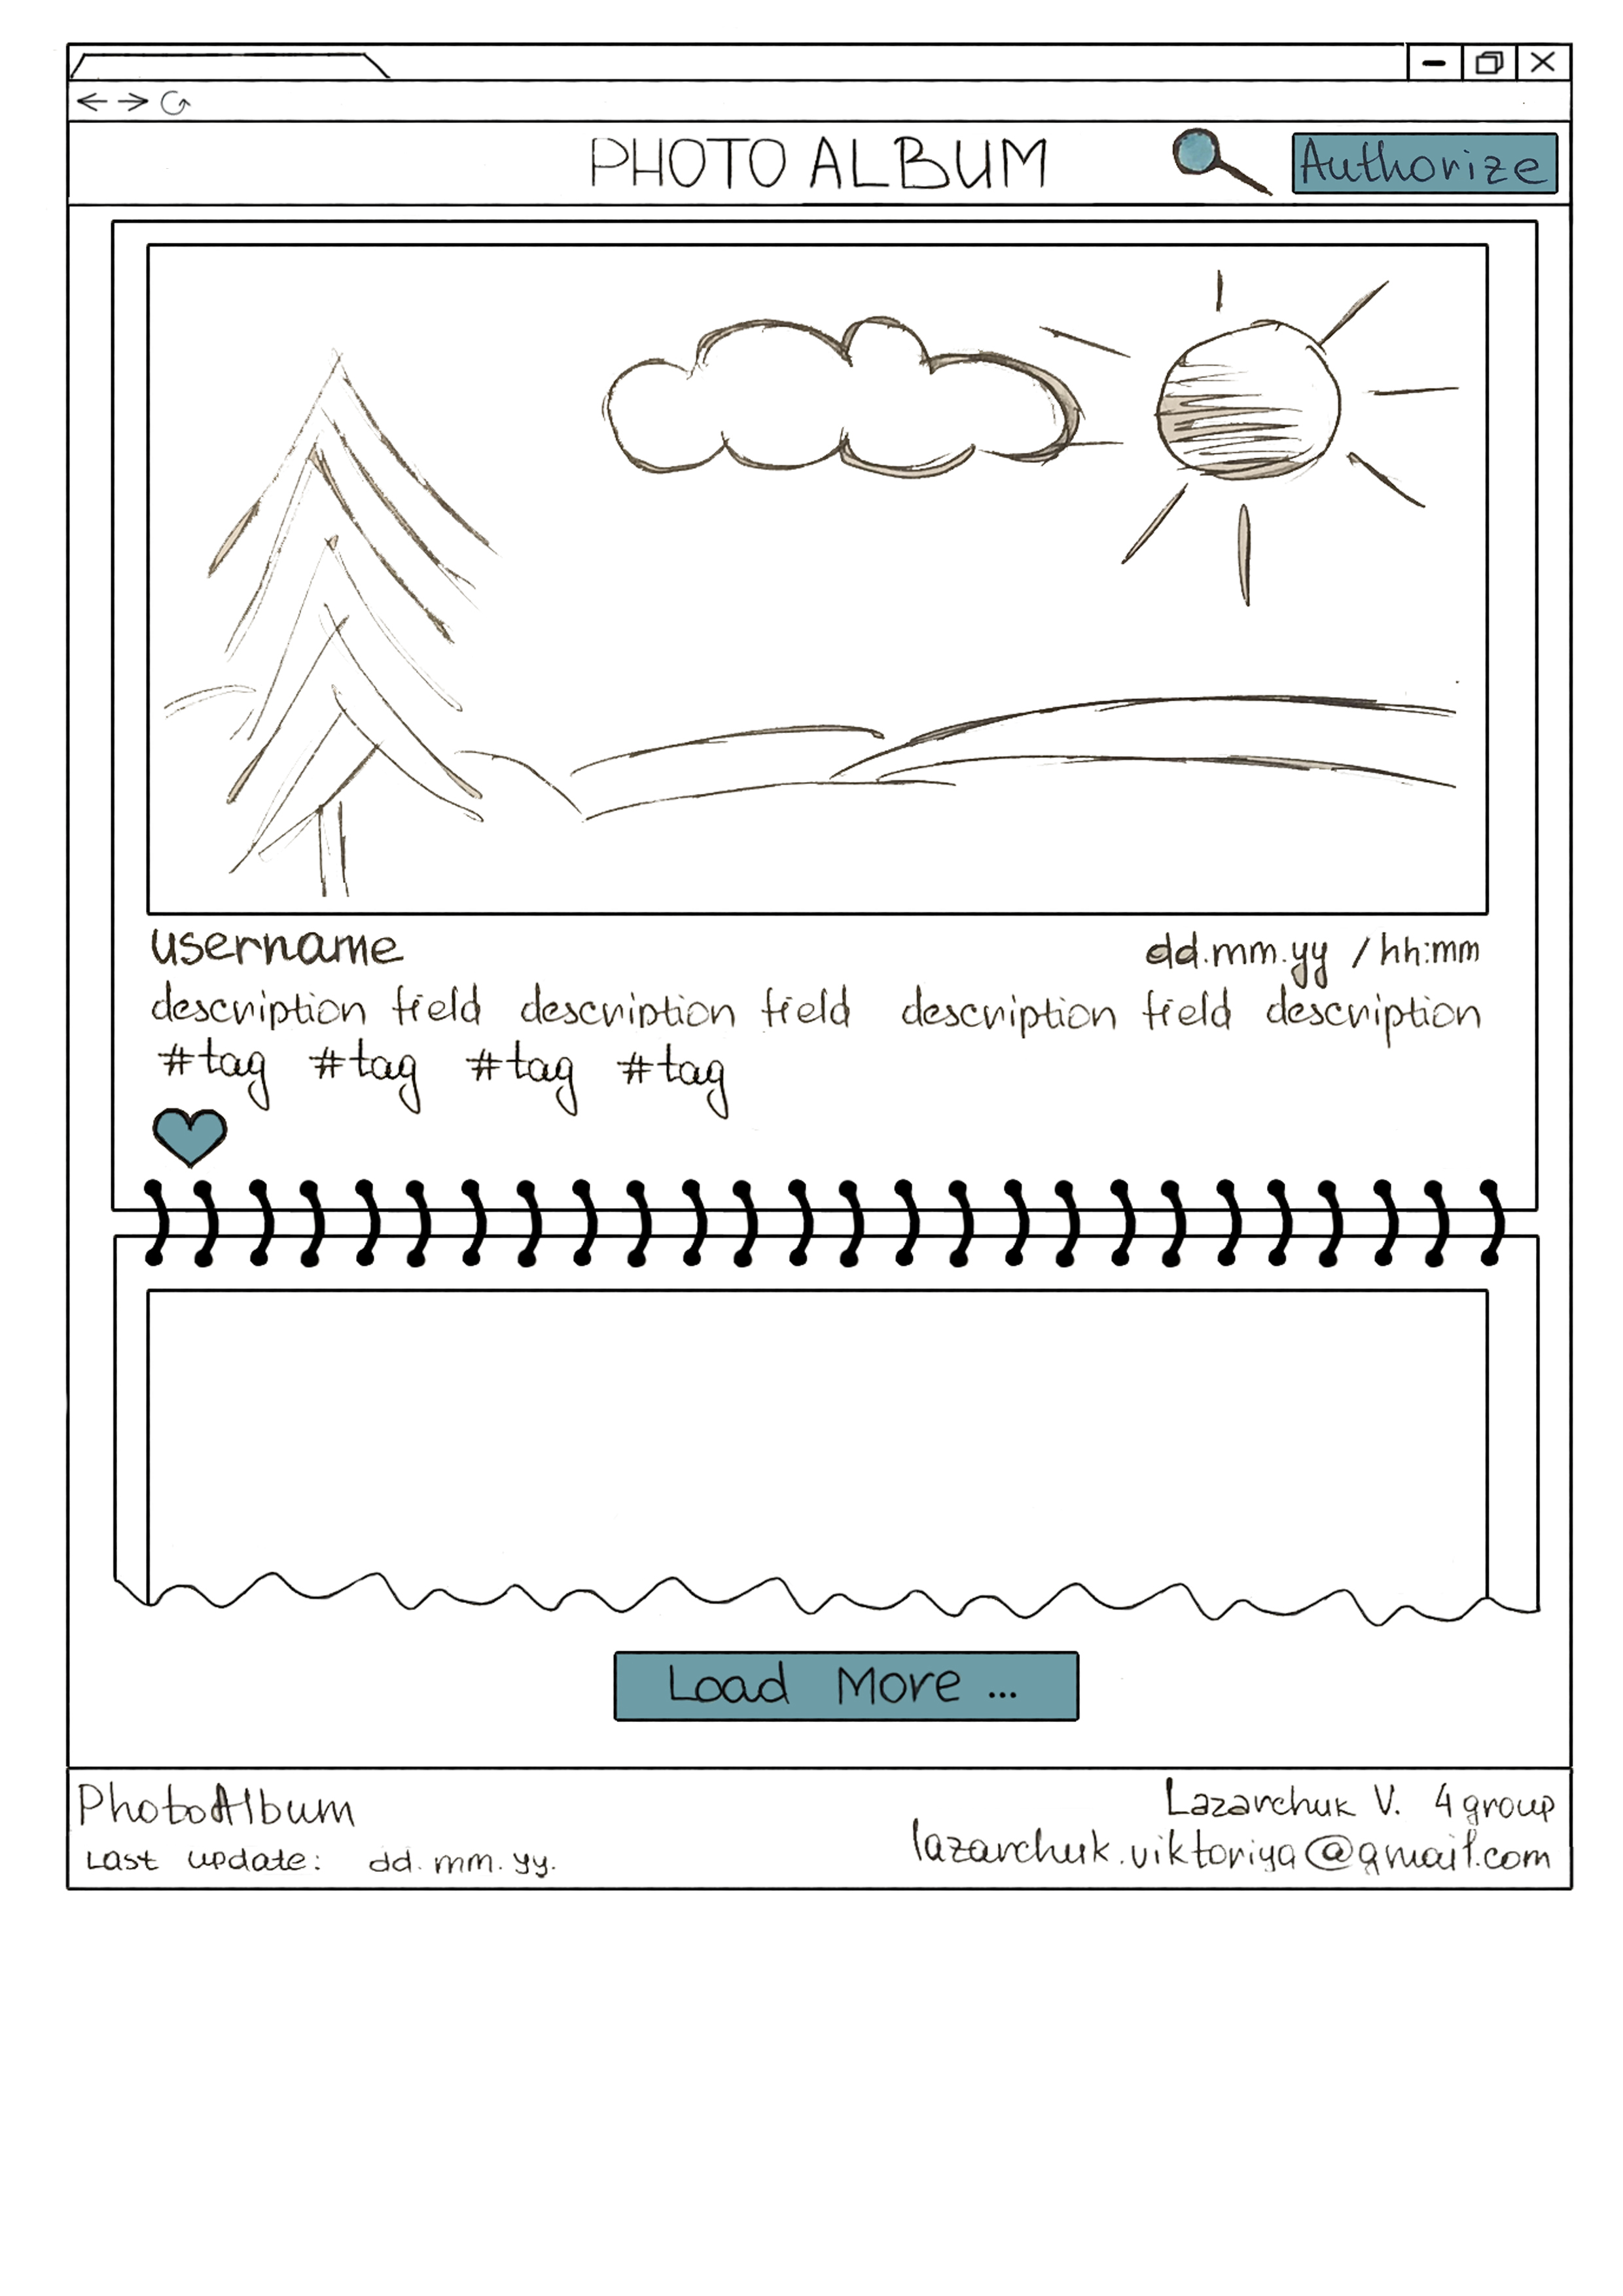 PHOTO ALBUM
Authorize
username
dd.mm.yy / hh:mm
description field description field description field description
#tag #tag #tag #tag
Load More ...
PhotoAlbum
Lazarchuk V. 4 group
Last update: dd.mm.yy.
lazarchuk.viktoriya@gmail.com